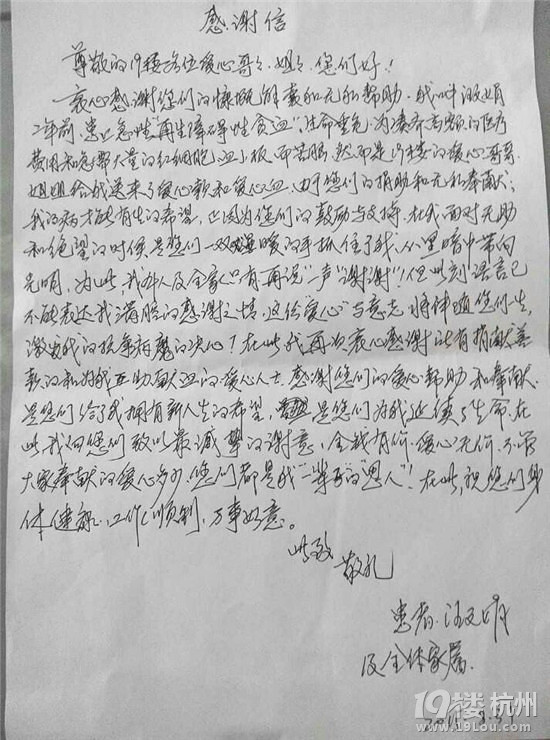 感谢信
尊敬的19楼各位爱心哥哥、姐姐、您们好！
衷心感谢您们的慷慨解囊和无私帮助。我叫汪文娟
2年前，患上急性"再生障碍性贫血"，生命垂危，为凑齐高额的医疗
费用和急需大量的红细胞、血小板，而苦恼，然而是19楼的爱心哥哥
姐姐给我送来了爱心款和爱心血，由于您们的捐助和无私奉献，
我的病才能有生的希望，正因为您们的鼓励与支持，在我面对无助
和绝望的时候是您们一双暖暖的手抓住了我，从黑暗中带向
光明，为此，我本人及全家只有再说一声"谢谢"！但此刻语言已
不能表达我满腔的感谢之情，这份"爱心"与意志将伴随您们一生，
激发我的抗争病魔的决心！在此我再次衷心感谢所有捐献善
款的和为我互助献血的爱心人士，感谢您们的爱心帮助和奉献
是您们给了我拥有新人生的希望，是您们为我延续了生命，在
此我向您们致以最诚挚的谢意，金钱有价，爱心无价，不管
大家奉献的爱心多少，您们都是我"一辈子的"恩人"！在此，祝您们身
体健康、工作顺利，万事如意。
此致
敬礼
患者：汪文娟
及全体家属
19楼 杭州
www.19Lou.com